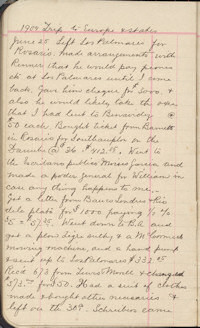 1904 Trip to Europe & States
June 25 Left Los Palmares for
Rosario. Made arrangements with
Renner that he would pay peones
at Los Palmares until I came
back. Gave him cheque for 3000. &
also he would likely take the
that I had lent to Benwardy @
50 each. Bought ticket from Barnett
in Rosario for Southampton on the
Danube @ 36 = 412.⁰⁰. Went to
the Escribano publico Moises Garcia and
made a poder general for William in
case any thing happens to me.
Got a letter from Banco Londres &
de la plata for 1000 paying ½ %
Went down to Hill and
got a plow Siegle sulky & a McCormick
mowing machine, and a hand pump
& sent up to Los Palmares
Rec'd 673 from Lewis & changed
for 50. Had a suit of clothes
made & bought other necessaries &
left on the 30ᵗʰ. Schreiber came